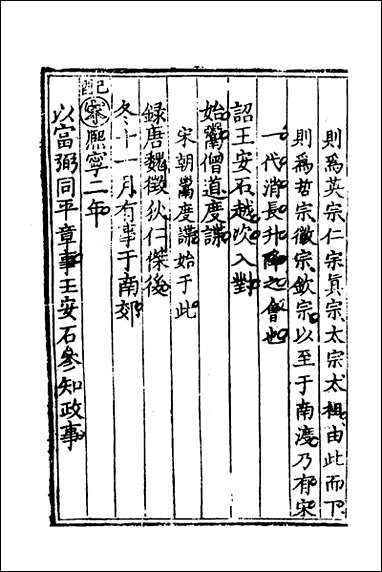 則爲英宗仁宗真宗太宗太祖由此而下
則爲哲宗徽宗欽宗以至于南渡乃有宋
一代消長升降之會也
詔王安石越次入對
始鬻僧道度諜
宋朝鬻度諜始于此
録唐魏徵狄仁傑後
冬十一月有事于南郊
己酉
熙寧二年
以富弼同平章事王安石參知政事